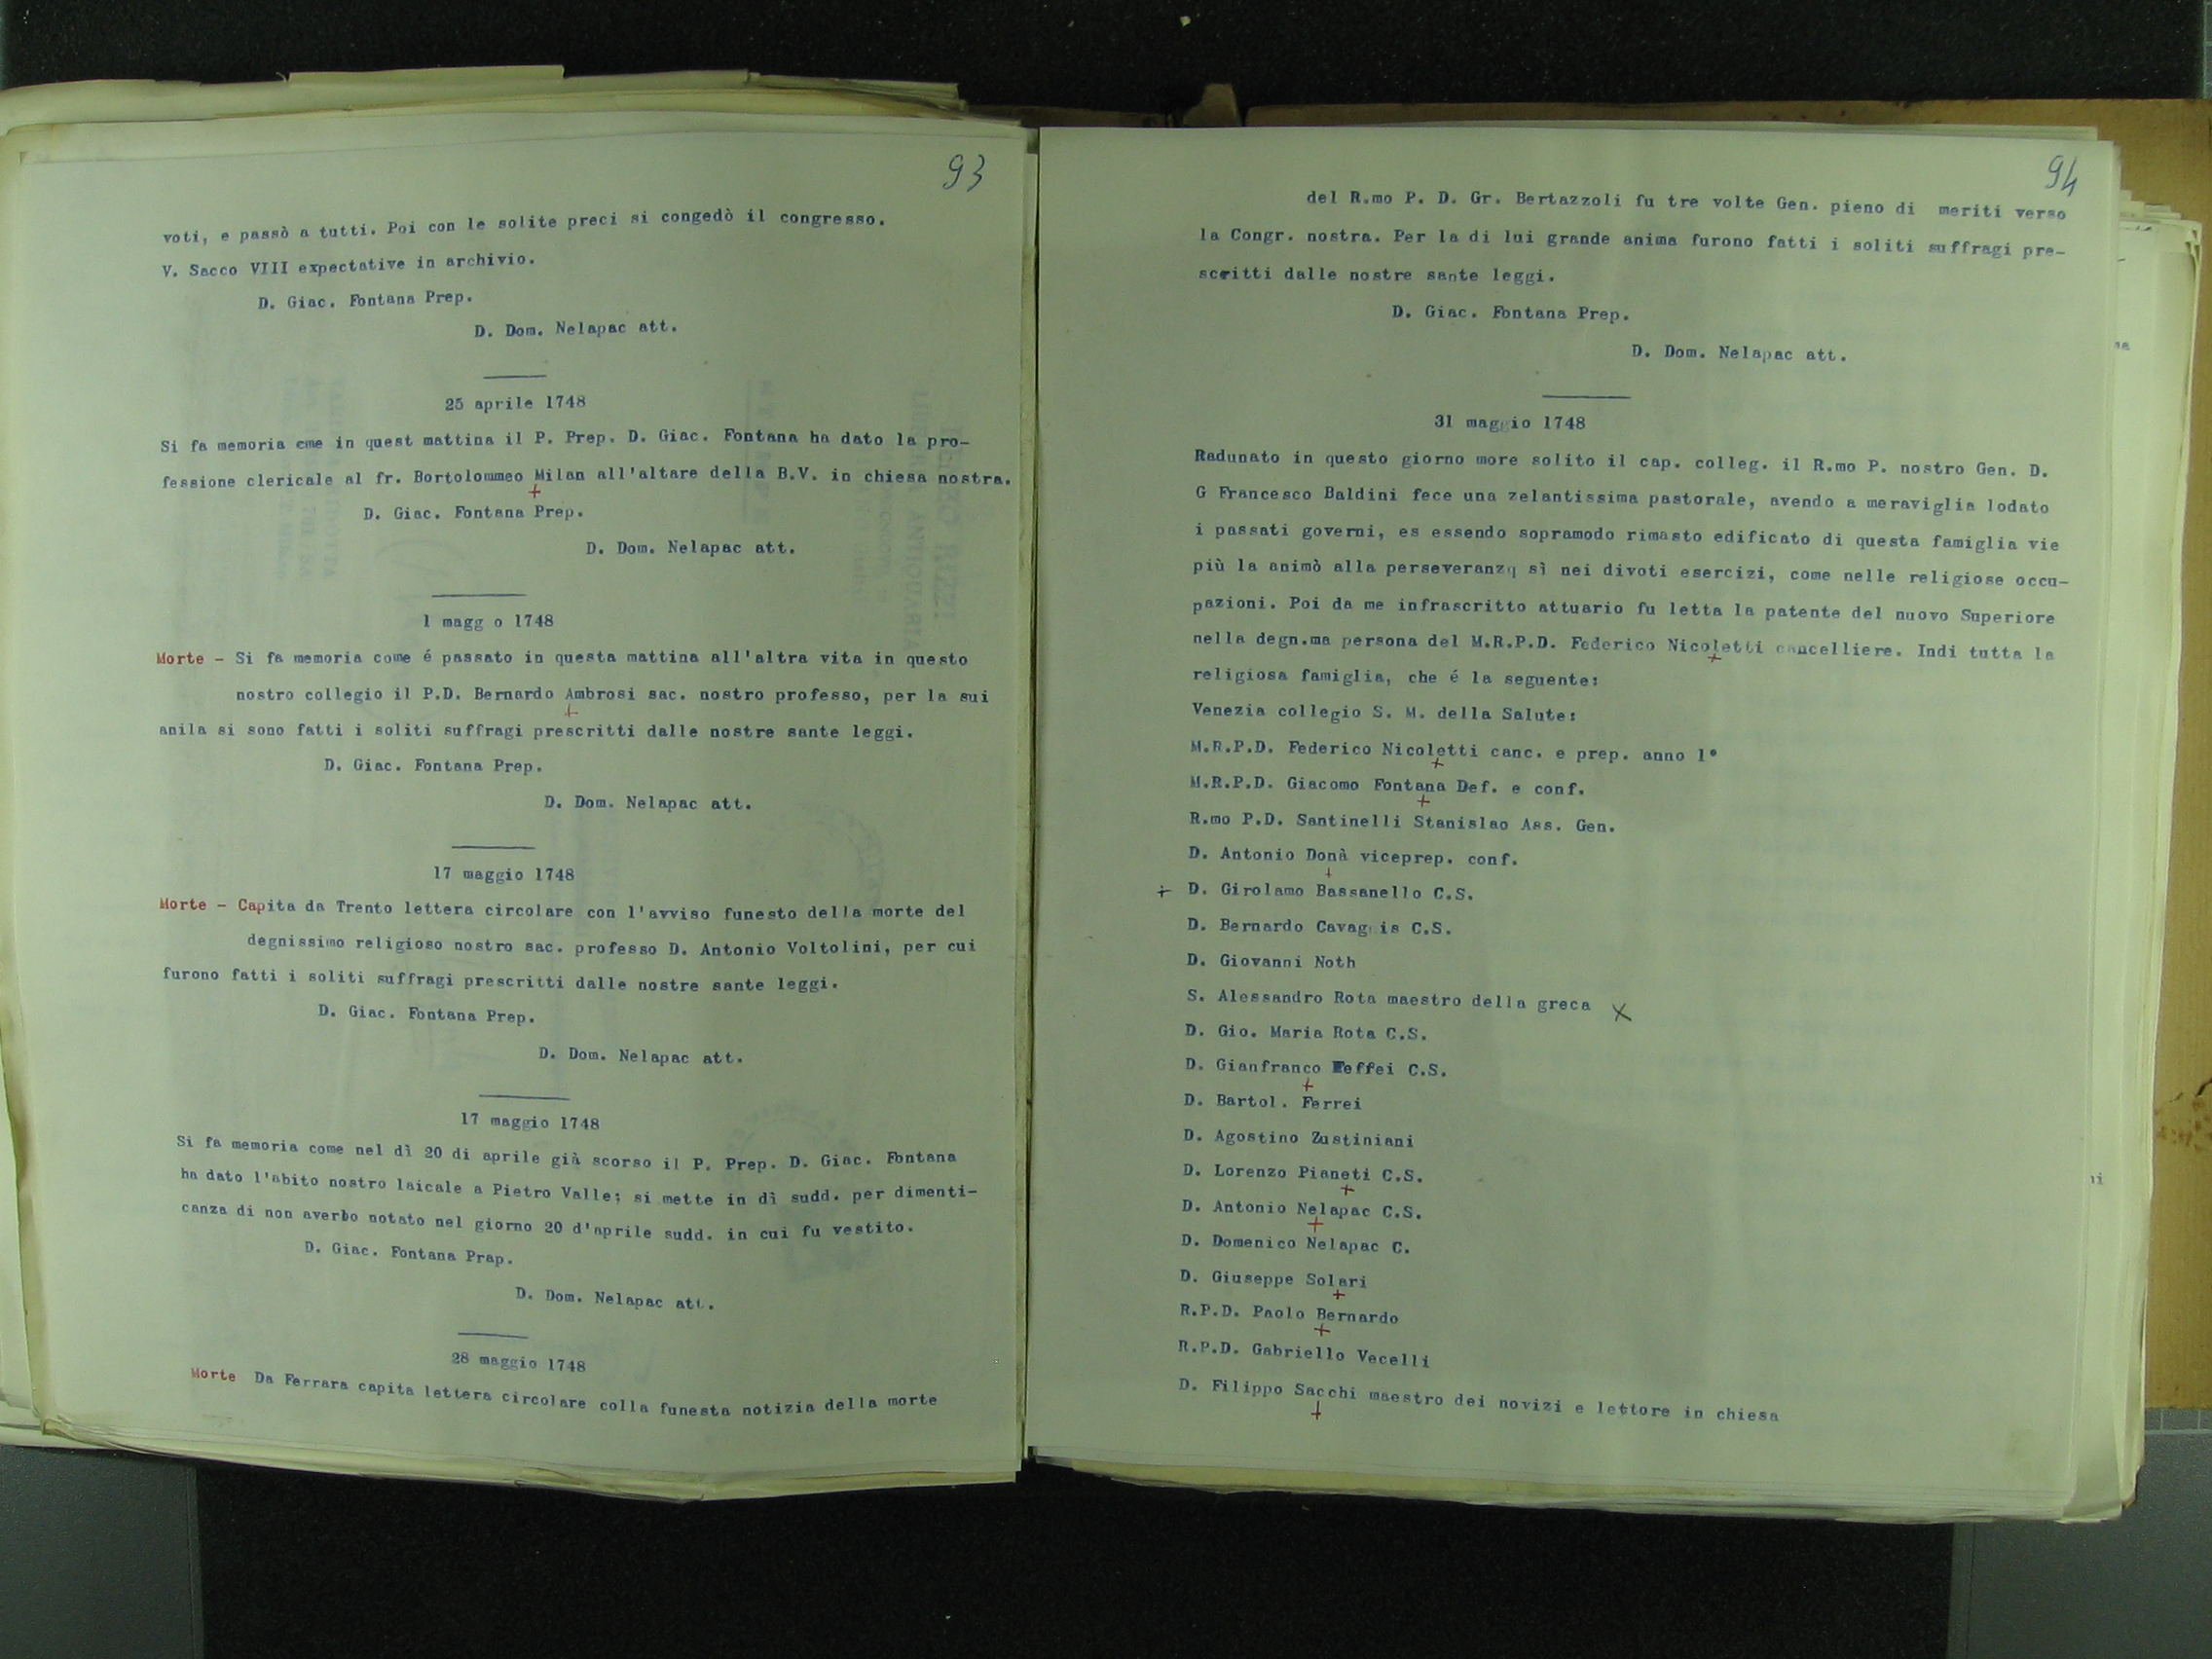 93
voti, e passò a tutti. Poi con le solite preci si congedò il congresso.
V. Sacco VIII expectative in archivio.
D. Giac. Fontana Prep.
D. Dom. Nelapac att.
25 aprile 1748
Si fa memoria cme in quest mattina il P. Prep. D. Giac. Fontana ha dato la pro-
fessione clericale al fr. Bortolommeo Milan all'altare della B.V. in chiesa nostra.
+
D. Giac. Fontana Prep.
D. Dom. Nelapac att.
1 magg o 1748
Morte - Si fa memoria come é passato in questa mattina all'altra vita in questo
nostro collegio il P.D. Bernardo Ambrosi sac. nostro professo, per la sui
+
anila si sono fatti i soliti suffragi prescritti dalle nostre sante leggi.
D. Giac. Fontana Prep.
D. Dom. Nelapac att.
17 maggio 1748
Morte - Capita da Trento lettera circolare con l'avviso funesto della morte del
degnissimo religioso nostro sac. professo D. Antonio Voltolini, per cui
furono fatti i soliti suffragi prescritti dalle nostre sante leggi.
D. Giac. Fontana Prep.
D. Dom. Nelapac att.
17 maggio 1748
Si fa memoria come nel dì 20 di aprile già scorso il P. Prep. D. Giac. Fontana
ha dato l'abito nostro laicale a Pietro Valle; si mette in dì sudd. per dimenti-
canza di non averbo notato nel giorno 20 d'aprile sudd. in cui fu vestito.
D. Giac. Fontana Prap.
D. Dom. Nelapac att.
28 maggio 1748
Morte Da Ferrara capita lettera circolare colla funesta notizia della morte
94
del R.mo P. D. Gr. Bertazzoli fu tre volte Gen. pieno di meriti verso
la Congr. nostra. Per la di lui grande anima furono fatti i soliti suffragi pre-
scritti dalle nostre sante leggi.
D. Giac. Fontana Prep.
D. Dom. Nelapac att.
31 maggio 1748
Radunato in questo giorno more solito il cap. colleg. il R.mo P. nostro Gen. D.
G Francesco Baldini fece una zelantissima pastorale, avendo a meraviglia lodato
i passati governi, es essendo sopramodo rimasto edificato di questa famiglia vie
più la animò alla perseveranzq sì nei divoti esercizi, come nelle religiose occu-
pazioni. Poi da me infrascritto attuario fu letta la patente del nuovo Superiore
nella degn.ma persona del M.R.P.D. Federico Nicoletti cancelliere. Indi tutta la
+
religiosa famiglia, che é la seguente:
Venezia collegio S. M. della Salute:
M.R.P.D. Federico Nicoletti canc. e prep. anno 1°
+
M.R.P.D. Giacomo Fontana Def. e conf.
+
R.mo P.D. Santinelli Stanislao Ass. Gen.
D. Antonio Donà viceprep. conf.
+
+ D. Girolamo Bassanello C.S.
D. Bernardo Cavagnis C.S.
D. Giovanni Noth
S. Alessandro Rota maestro della greca X
D. Gio. Maria Rota C.S.
D. Gianfranco Feffei C.S.
+
D. Bartol. Ferrei
D. Agostino Zustiniani
D. Lorenzo Pianeti C.S.
+
D. Antonio Nelapac C.S.
+
D. Domenico Nelapac C.
D. Giuseppe Solari
+
R.P.D. Paolo Bernardo
+
R.P.D. Gabriello Vecelli
D. Filippo Sacchi maestro dei novizi e lettore in chiesa
+